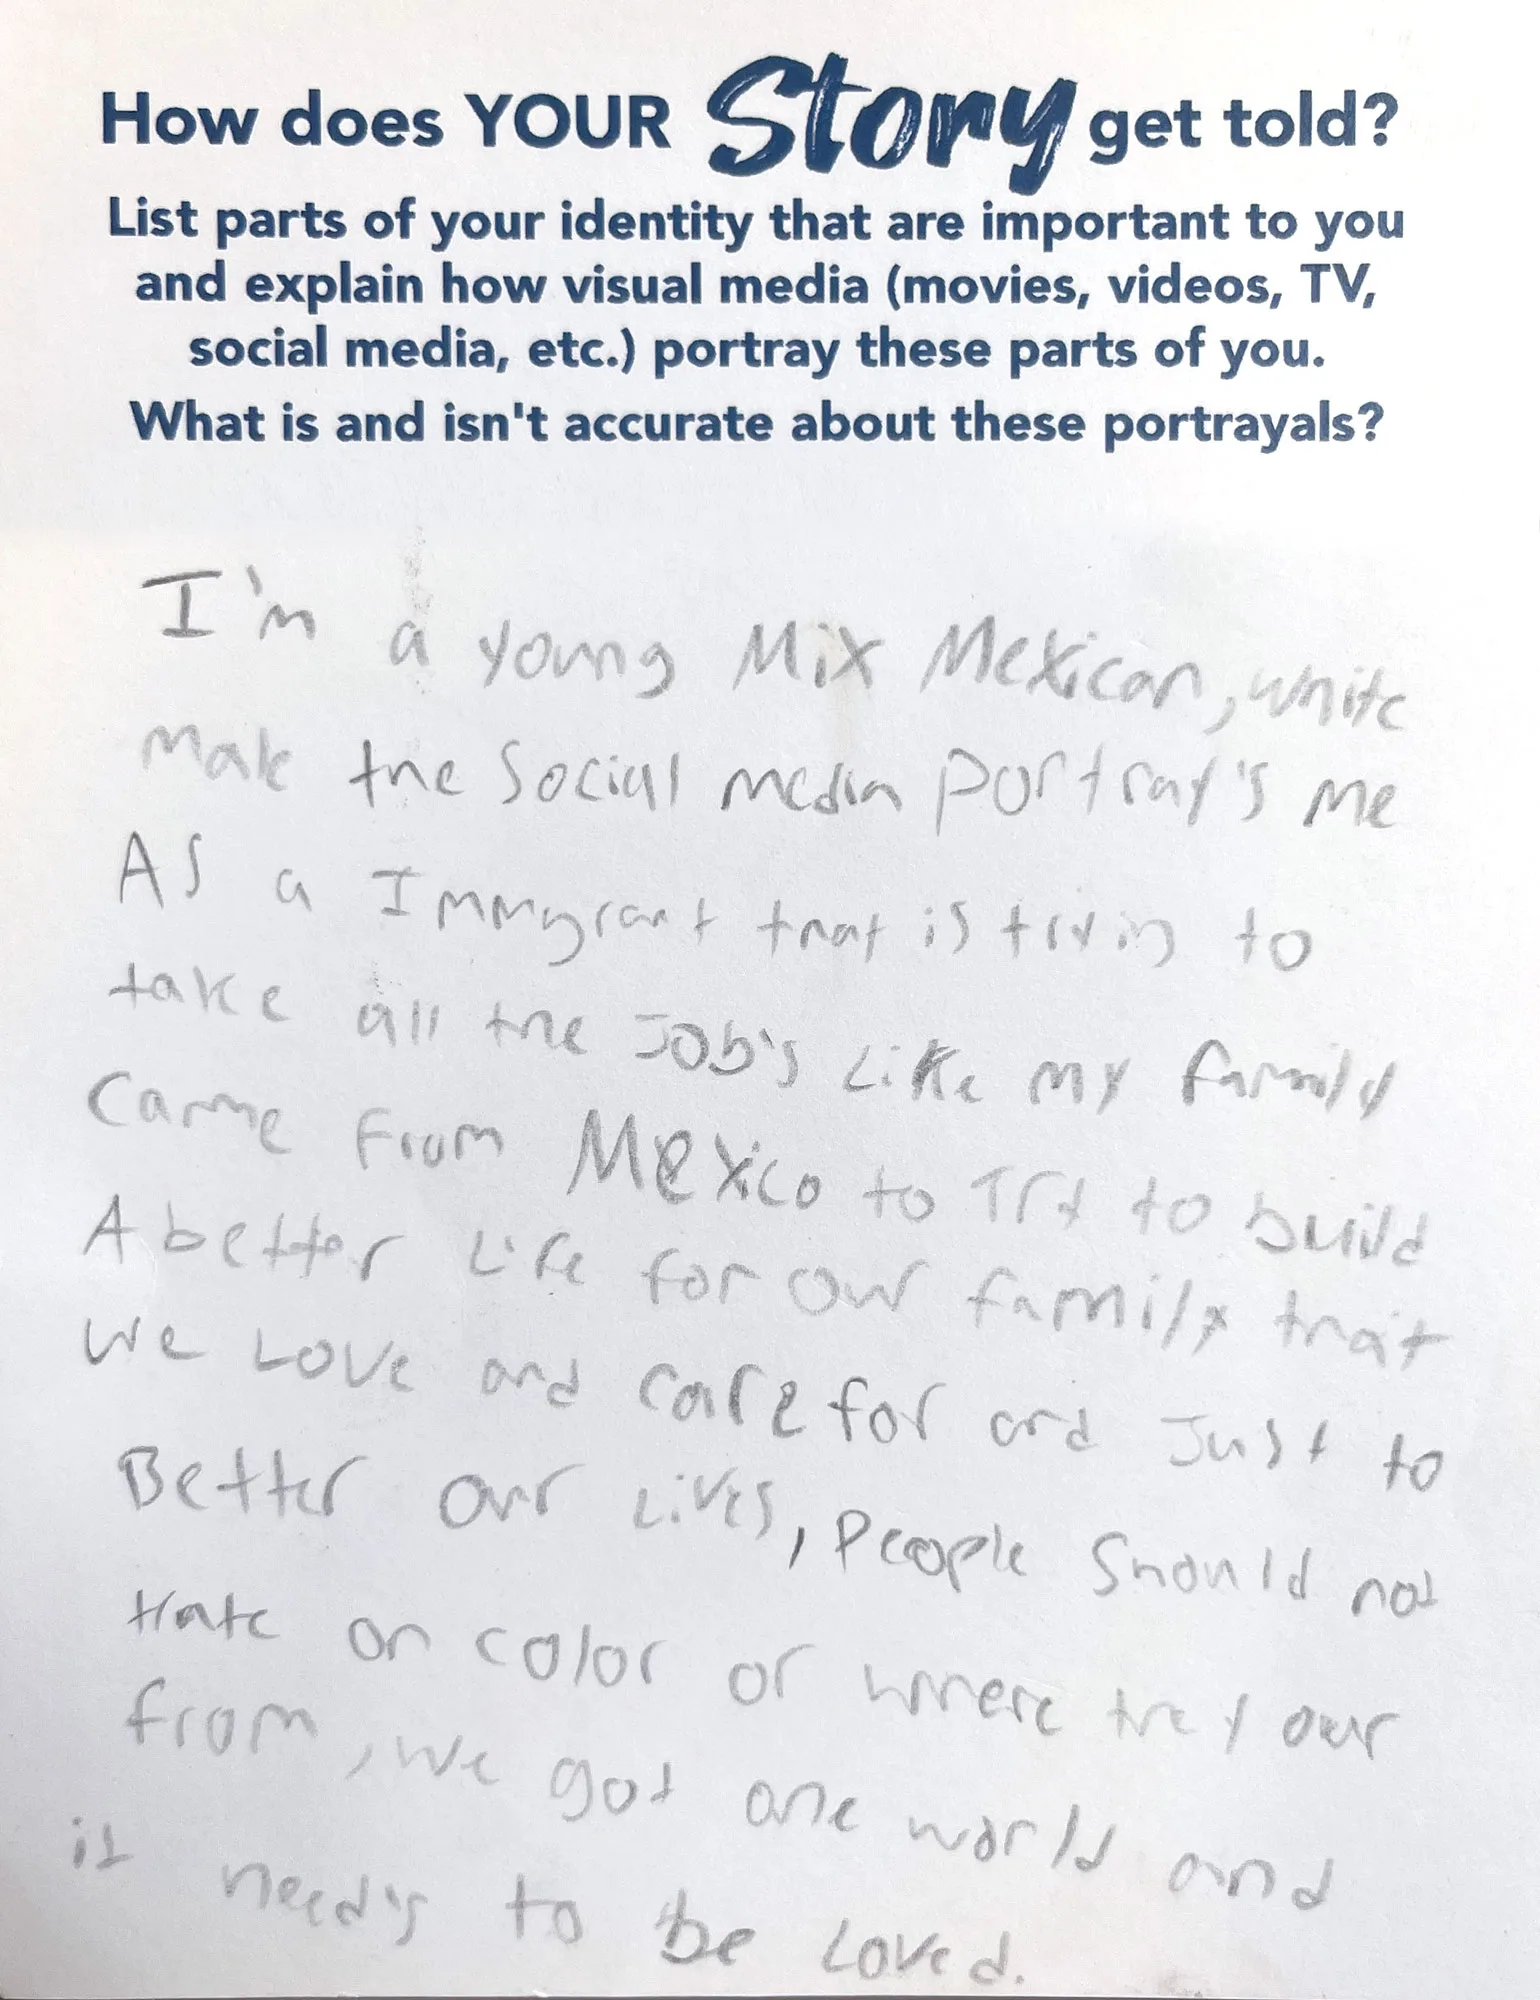 How does YOUR Story get told?
List parts of your identity that are important to you
and explain how visual media (movies, videos, TV,
social media, etc.) portray these parts of you.
What is and isn't accurate about these portrayals?
I'm a young Mix Mexican, white
Male the Social media portray's me
As a Immygrant that is trying to
take all the Job's Like my family
Came from Mexico to Try to build
A better Life for our family that
we Love and care for and Just to
Better our Lives, People Should not
Hate on color or where they our
from, we got one world and
it need's to be Loved.